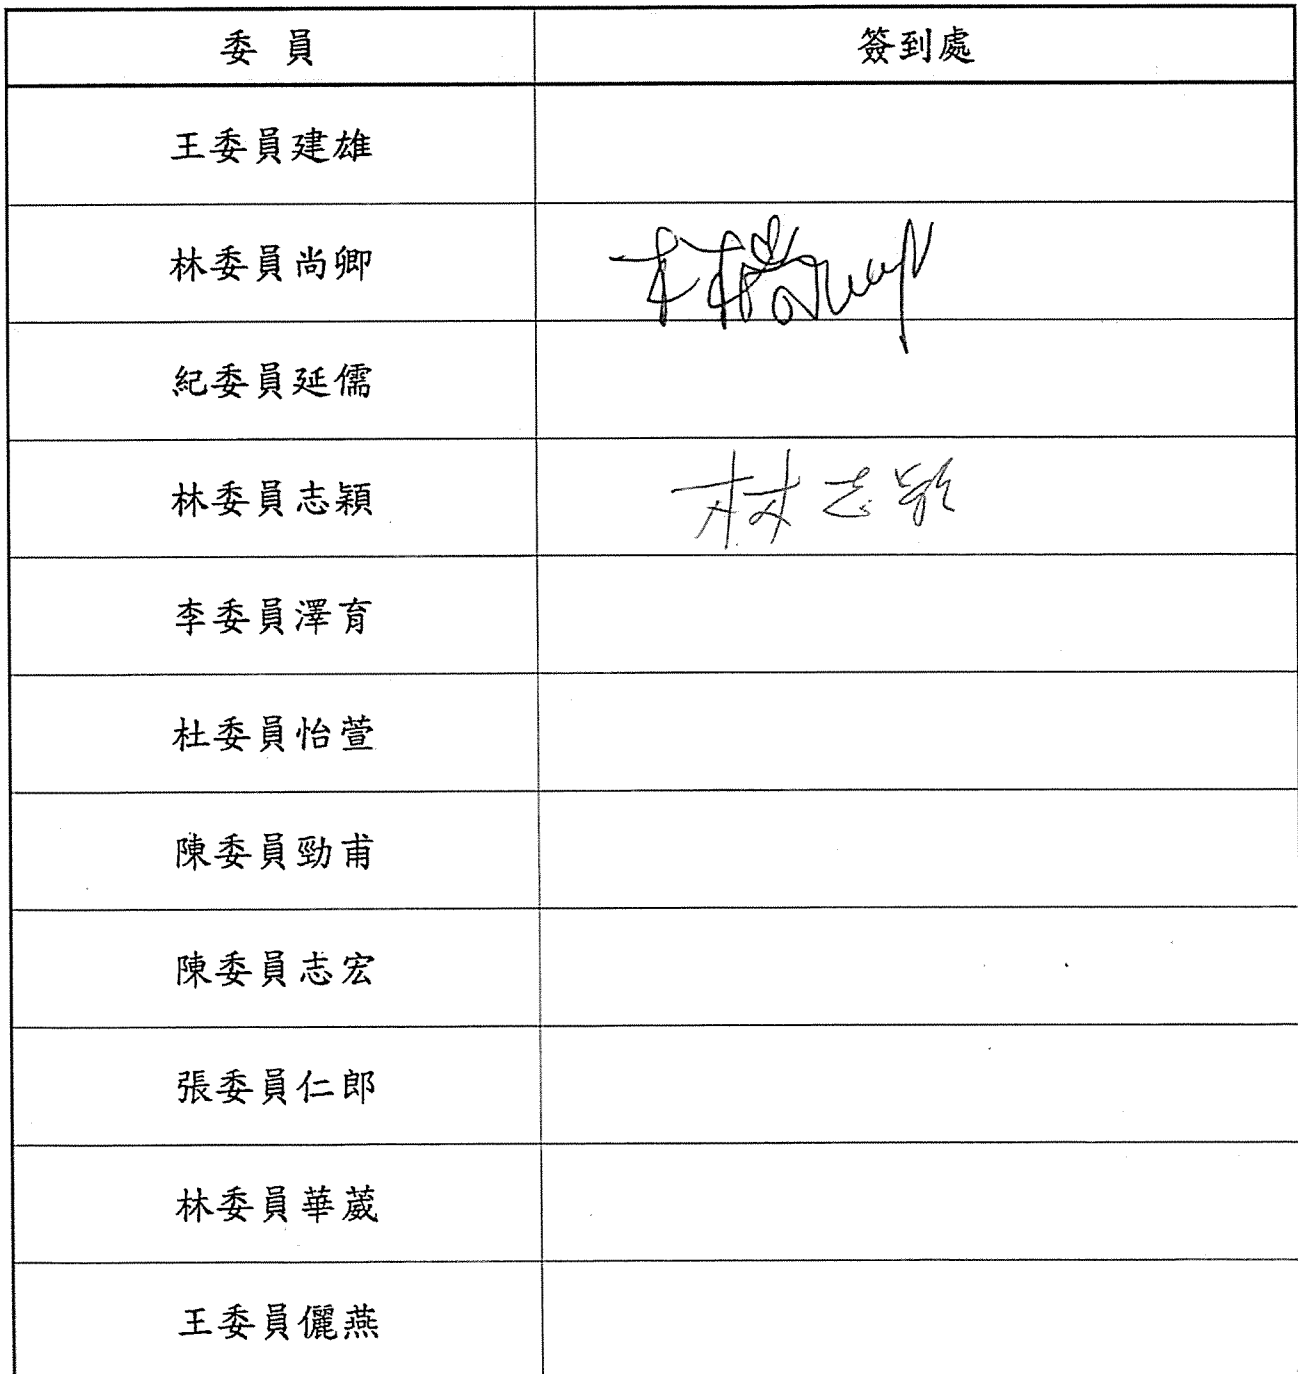 委 員 簽到處
王委員建雄
林委員尚卿 林尚卿
紀委員延儒
林委員志穎 林志穎
李委員澤育
杜委員怡萱
陳委員勁甫
陳委員志宏
張委員仁郎
林委員華葳
王委員儷燕